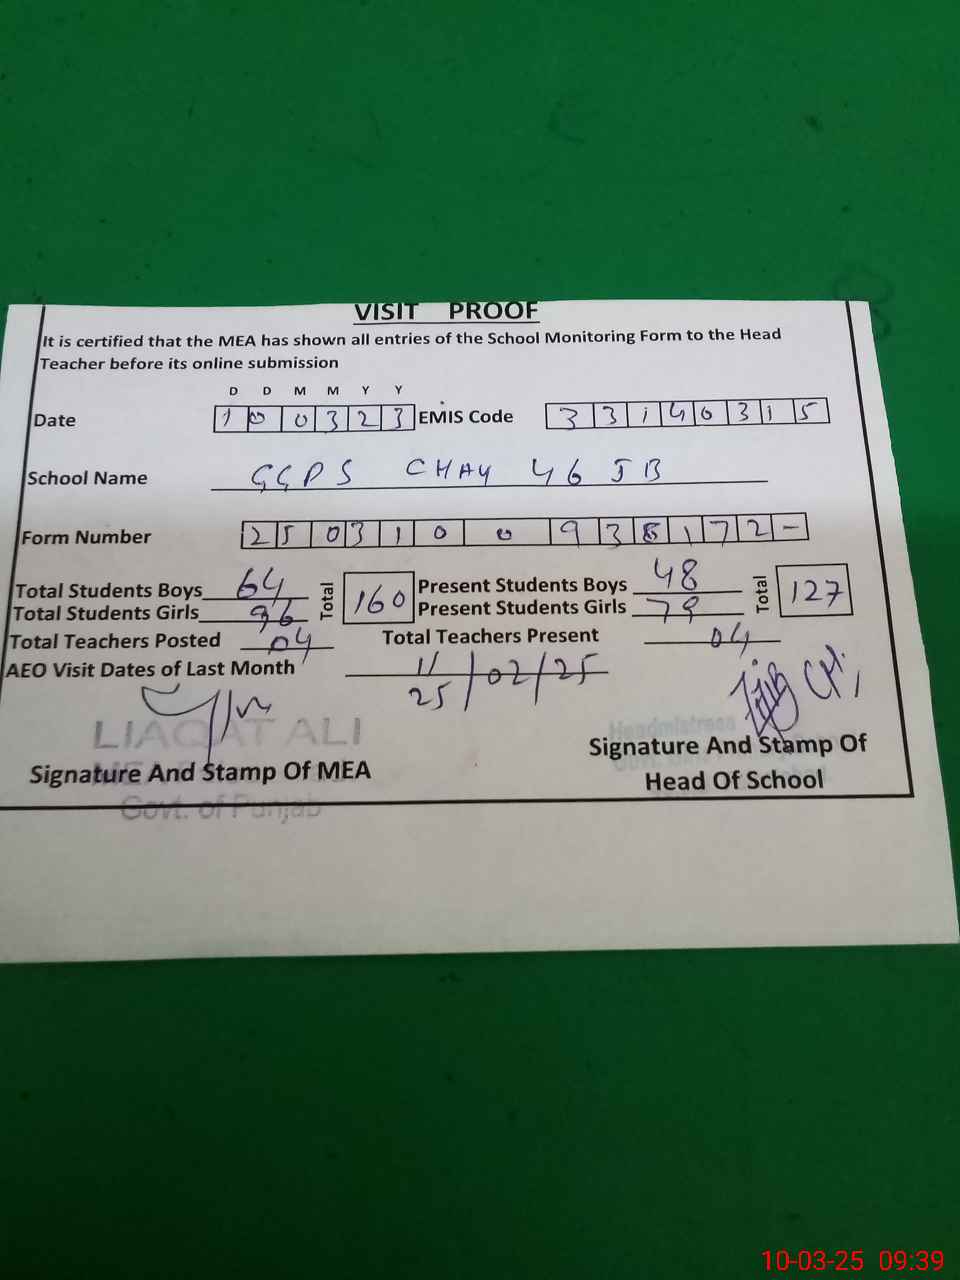 VISIT PROOF
It is certified that the MEA has shown all entries of the School Monitoring Form to the Head
Teacher before its online submission
D D M M Y Y
Date 1 0 0 3 2 3 EMIS Code 3 3 1 4 0 3 1 5
School Name GGPS CHAK 46 JB
Form Number 2 5 0 3 1 0 0 9 3 8 1 7 2 -
Total Students Boys 64 Total 160 Present Students Boys 48 Total 127
Total Students Girls 96 Present Students Girls 79
Total Teachers Posted 04 Total Teachers Present 04
AEO Visit Dates of Last Month 11/25/02/25
LIAQAT ALI
Headmistress
Signature And Stamp Of MEA
Signature And Stamp Of
Head Of School
Govt. of Punjab
10-03-25 09:39